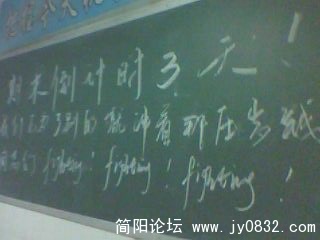 期末倒计时3天!
就冲着那压岁钱
同志们 fighting! fighting! fighting!
简阳论坛 www.jy0832.com